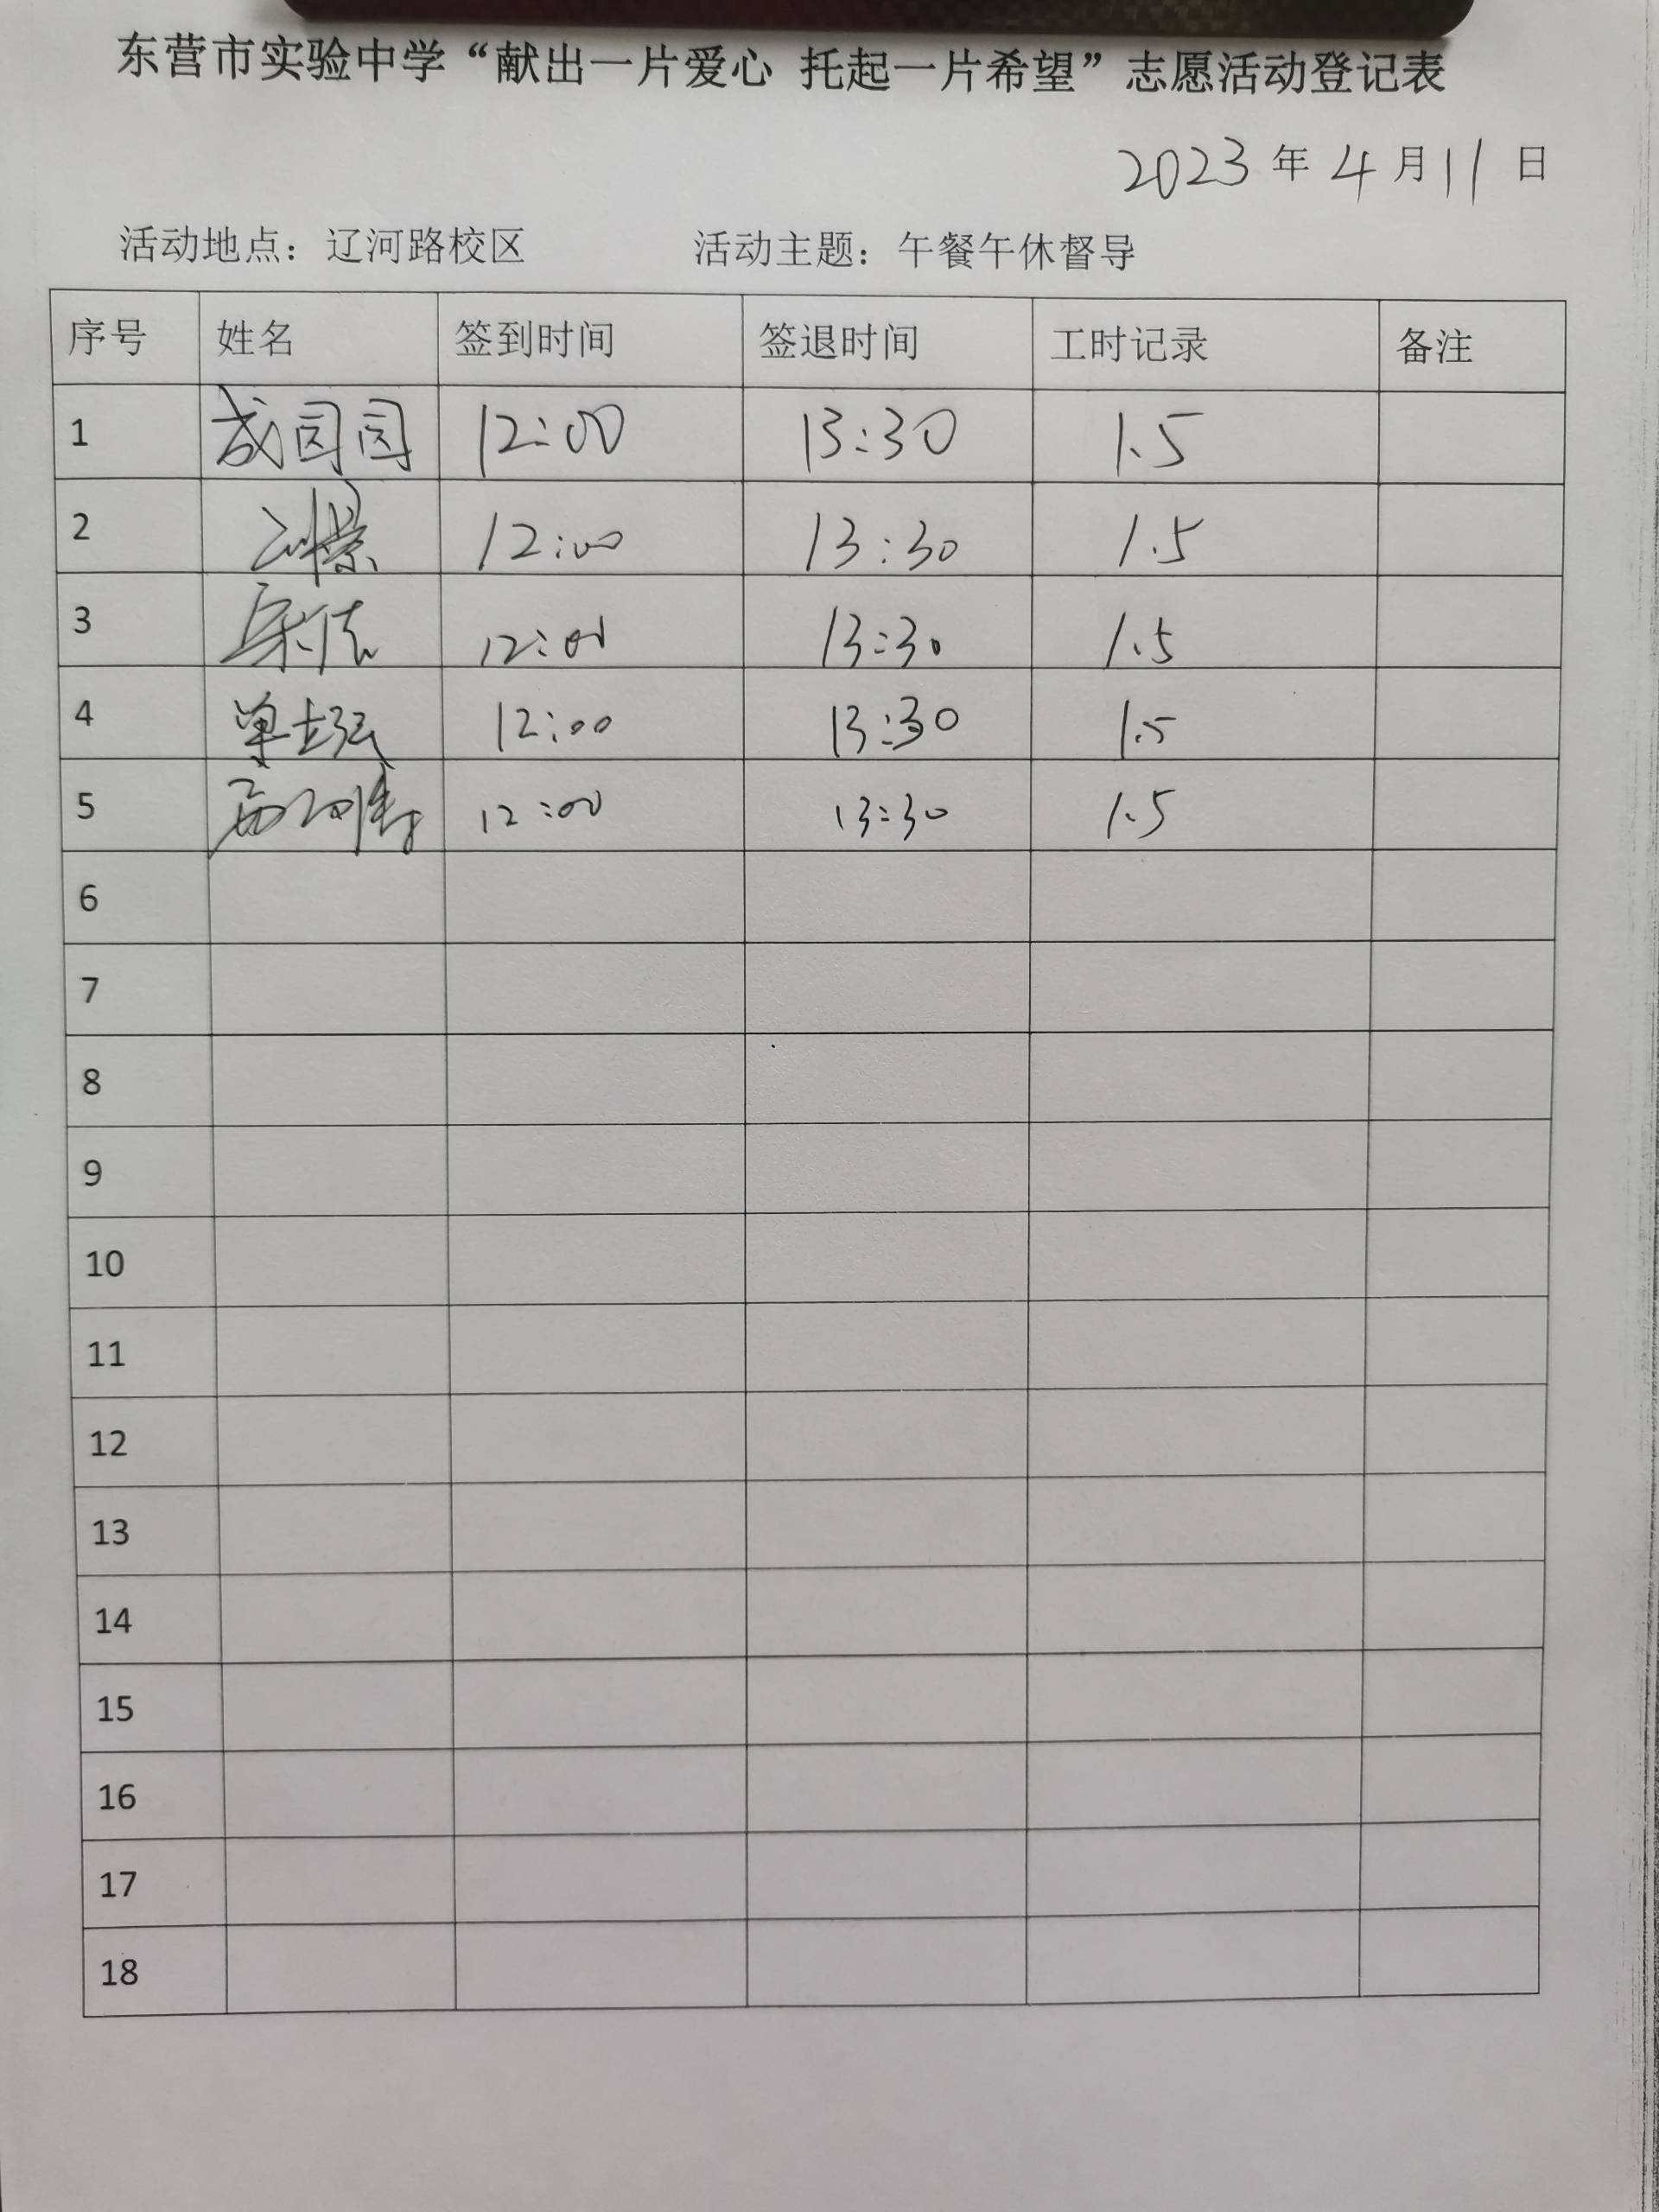 东营市实验中学“献出一片爱心 托起一片希望”志愿活动登记表
2023 年 4 月 11 日
活动地点：辽河路校区 活动主题：午餐午休督导
序号 姓名 签到时间 签退时间 工时记录 备注
1 成园园 12:00 13:30 1.5
2 12:00 13:30 1.5
3 12:00 13:30 1.5
4 12:00 13:30 1.5
5 12:00 13:30 1.5
6
7
8
9
10
11
12
13
14
15
16
17
18